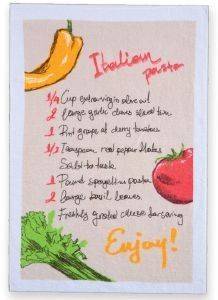 Italian
pasta
1/4 Cup extra virgin olive oil
2 large garlic cloves sliced thin
1 Pint grape or cherry tomatoes
1/2 Teaspoon red pepper flakes
Salt to taste
1 Pound spaghetti pasta
2 Large basil leaves
Freshly grated cheese for serving
Enjoy!